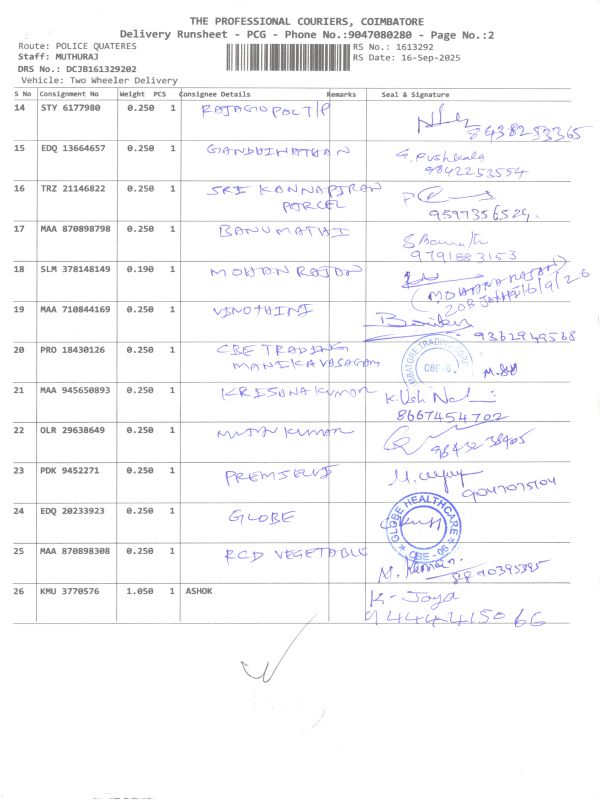 THE PROFESSIONAL COURIERS, COIMBATORE
Delivery Runsheet - PCG - Phone No.:9047080280 - Page No.:2
Route: POLICE QUATERES RS No.: 1613292
Staff: MUTHURAJ RS Date: 16-Sep-2025
DRS No.: DCJB161329202
Vehicle: Two Wheeler Delivery
S No Consignment No Weight PCS Consignee Details Remarks Seal & Signature
14 STY 6177980 0.250 1 RAJAGOPAL T/P
8438253365
15 EDQ 13664657 0.250 1 GANDHINATHAN G. Pushkala
9842253554
16 TRZ 21146822 0.250 1 SRI KANNAPIRAN
PARCEL
9597356529.
17 MAA 870898798 0.250 1 BANUMATHI
9791883153
18 SLM 378148149 0.190 1 MOHAN RAJAN
(MOHANA RAJAN)
19 MAA 710844169 0.250 1 VINOTHINI
9362949568
20 PRO 18430126 0.250 1 CBE TRADING
MANIKAVASAGAM
CBE-6.
21 MAA 945650893 0.250 1 KRISHNA KUMAR
8667454702
22 OLR 29638649 0.250 1 MUTHU KUMAR
98432 38905
23 PDK 9452271 0.250 1 PREMSELVI
9047075704
24 EDQ 20233923 0.250 1 GLOBE
GLOBE HEALTHCARE
CBE-06
25 MAA 870898308 0.250 1 RCD VEGETABLE
8890395395
26 KMU 3770576 1.050 1 ASHOK K- Jaya
9444415066